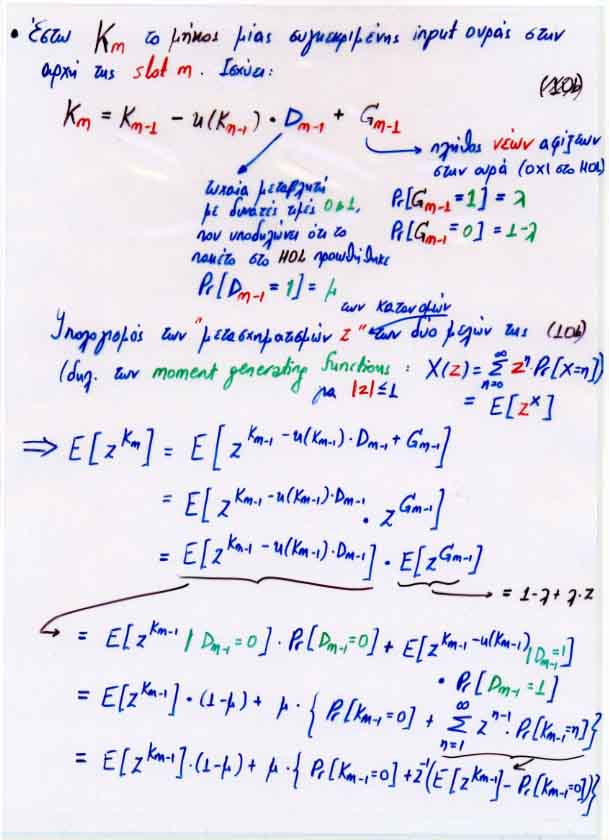 • Έστω Kₘ το μήκος μίας συγκεκριμένης input ουράς στην
αρχή της slot m. Ισχύει:
(10b)
Kₘ = Kₘ₋₁ - u(Kₘ₋₁) · Dₘ₋₁ + Gₘ₋₁
πλήθος νέων αφίξεων
στην ουρά (όχι στο HOL)
Pr[Gₘ₋₁ = 1] = λ
Pr[Gₘ₋₁ = 0] = 1-λ
τυχαία μεταβλητή
με δυνατές τιμές 0 ή 1,
που υποδηλώνει ότι το
πακέτο στο HOL προωθήθηκε
Pr[Dₘ₋₁ = 1] = μ
των κατανομών
Υπολογισμός των "μετασχηματισμών z" των δυο μελών της (10b)
(δηλ. των moment generating functions : X(z) = Σ_{n=0}^{∞} zⁿ·Pr[X=n])
για |z| ≤ 1
= E[z^X]
⇒ E[z^{Kₘ}] = E[z^{Kₘ₋₁ - u(Kₘ₋₁)·Dₘ₋₁ + Gₘ₋₁}]
= E[z^{Kₘ₋₁ - u(Kₘ₋₁)·Dₘ₋₁} · z^{Gₘ₋₁}]
= E[z^{Kₘ₋₁ - u(Kₘ₋₁)·Dₘ₋₁}] · E[z^{Gₘ₋₁}]
= 1-λ+λ·z
= E[z^{Kₘ₋₁} | Dₘ₋₁=0] · Pr[Dₘ₋₁=0] + E[z^{Kₘ₋₁ - u(Kₘ₋₁)} | Dₘ₋₁=1]
· Pr[Dₘ₋₁=1]
= E[z^{Kₘ₋₁}] · (1-μ) + μ · { Pr[Kₘ₋₁=0] + Σ_{n=1}^{∞} z^{n-1} · Pr[Kₘ₋₁=n] }
= E[z^{Kₘ₋₁}] · (1-μ) + μ · { Pr[Kₘ₋₁=0] + z⁻¹(E[z^{Kₘ₋₁}] - Pr[Kₘ₋₁=0]) }